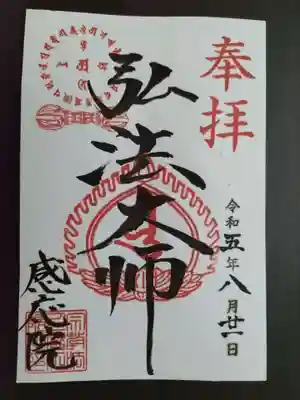 奉拝
令和五年八月廿一日
弘法大師
感応院